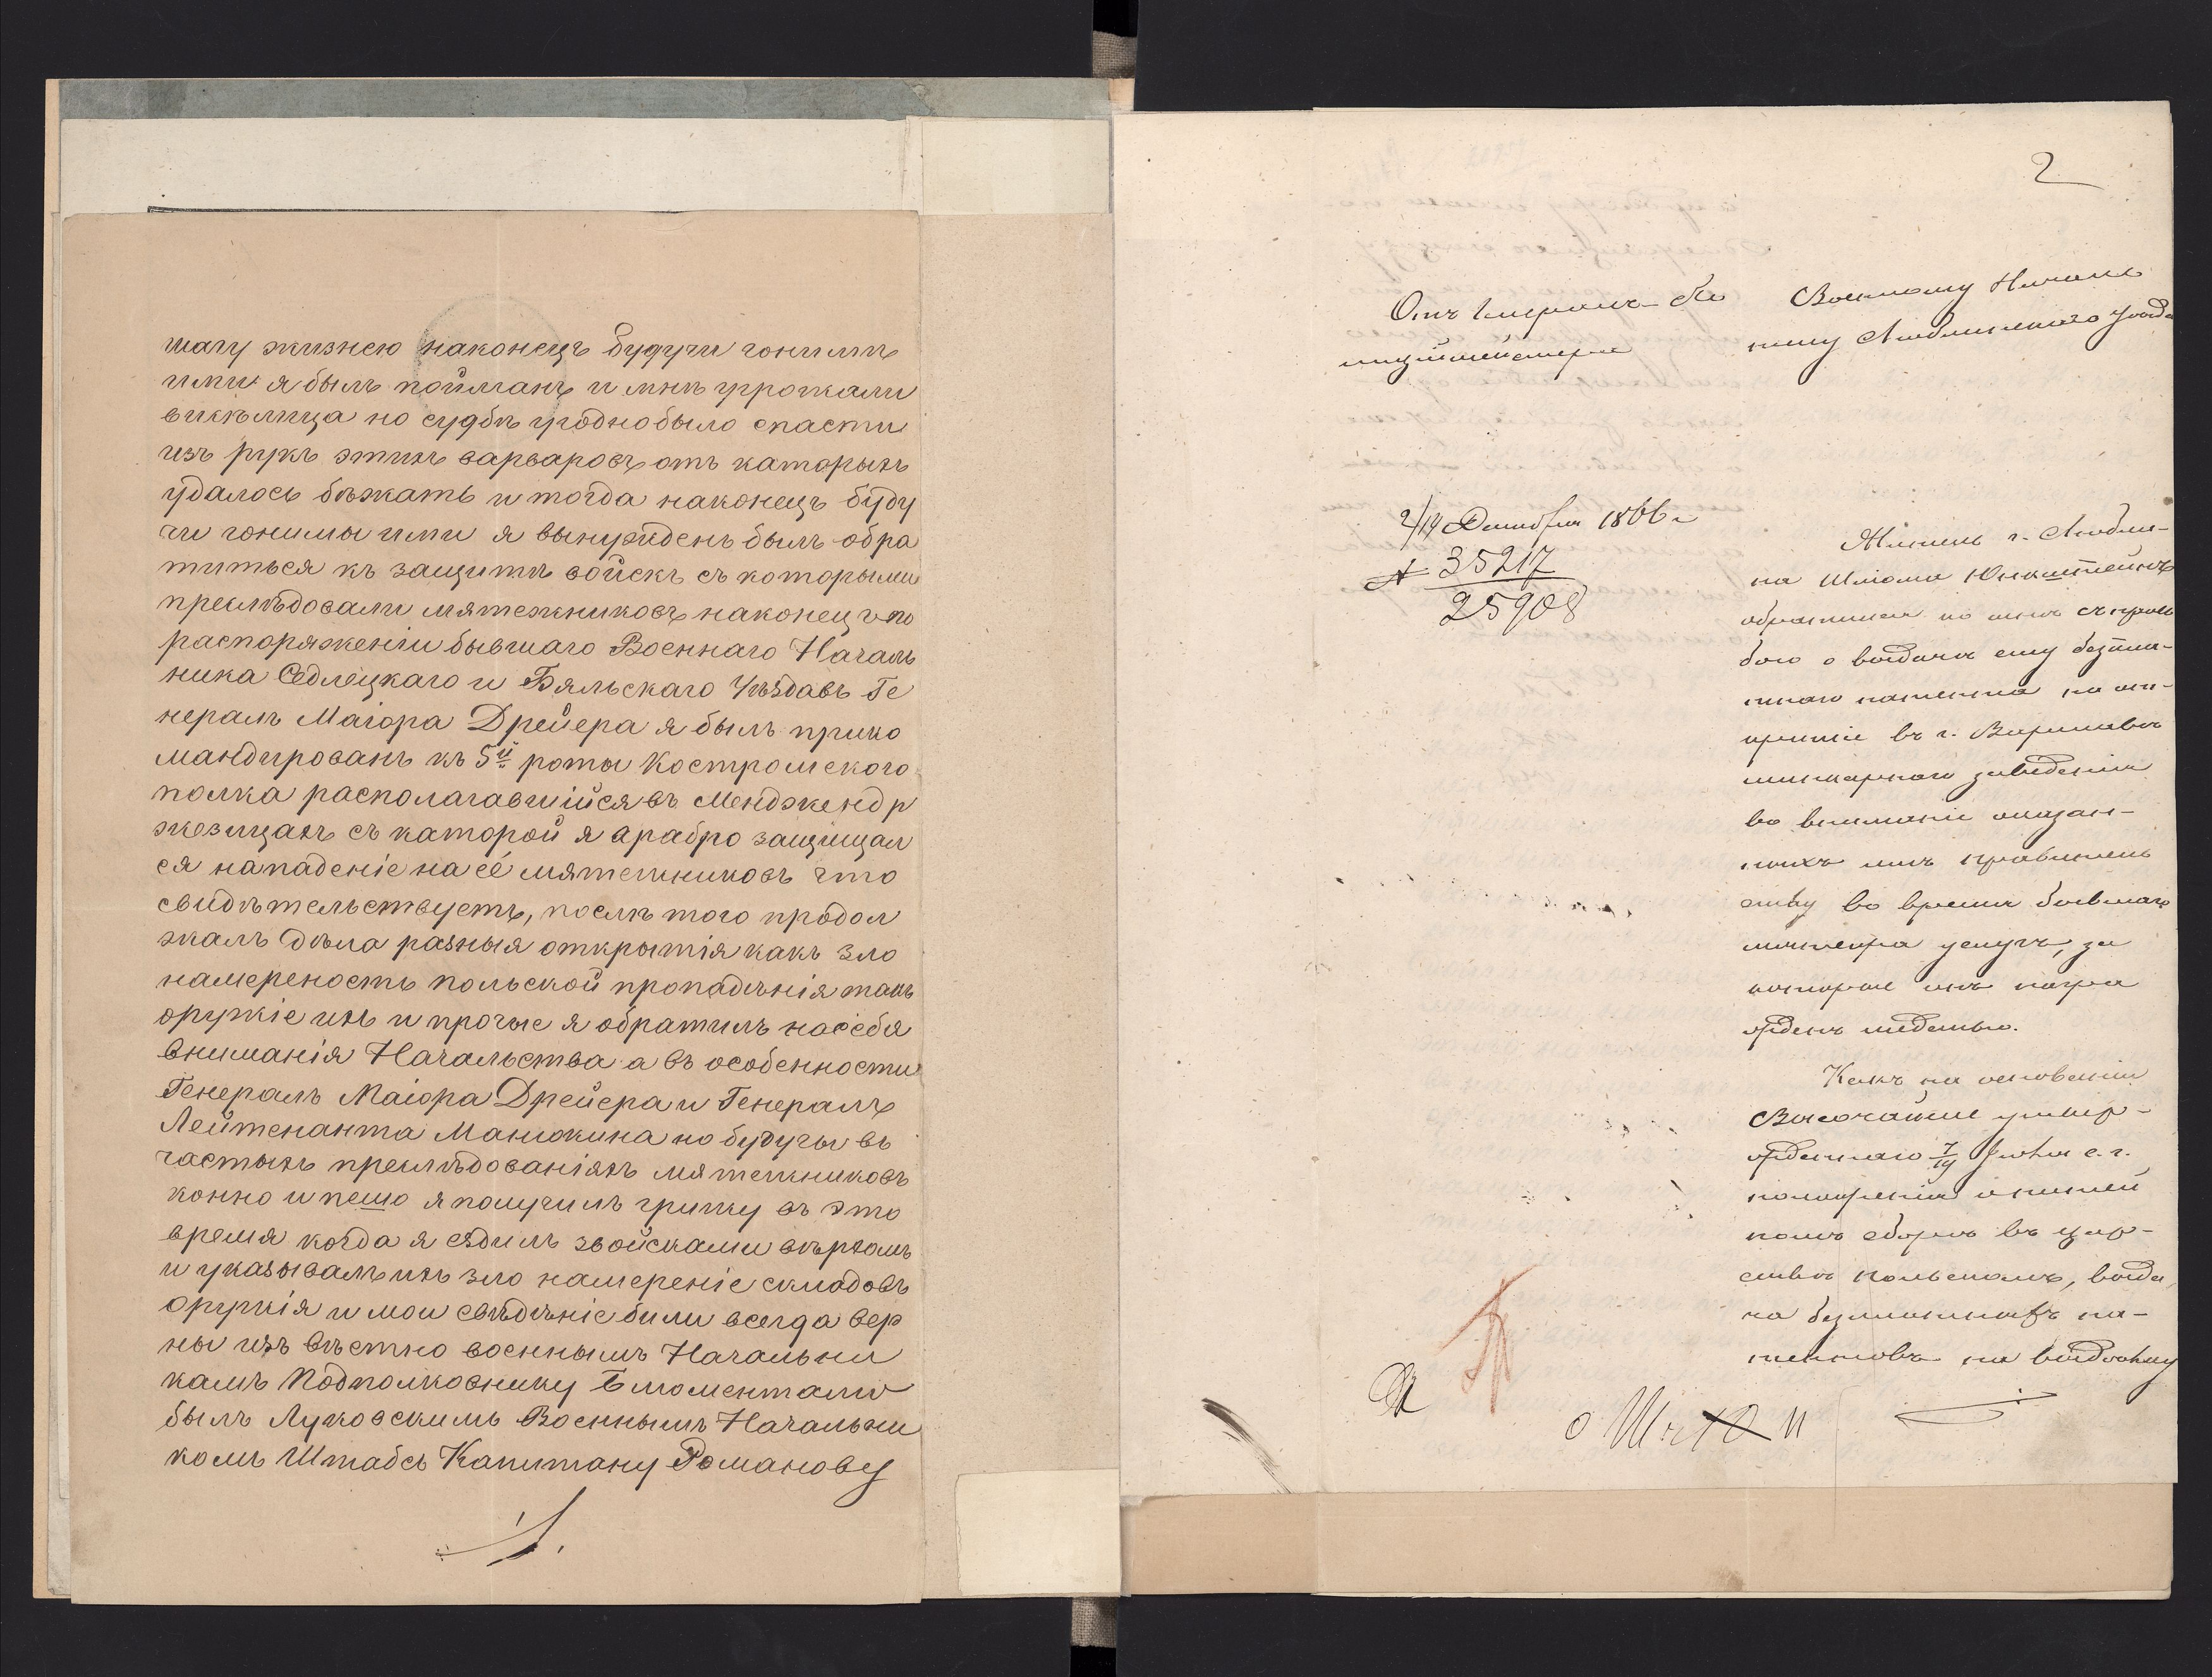 шагу жизнею наконецъ будучи гонимъ
ими я былъ пойманъ и мнѣ угрожали
висѣлица но судбѣ угодно было спасти
изъ рукъ этихъ варваровъ отъ каторыхъ
удалось бѣжать и тогда наконецъ буду
чи гонимы ими я вынужденъ былъ обра
титься къ защитѣ войскъ съ которыми
преслѣдовали мятежниковъ наконецъ по
распоряженiи бывшаго Военнаго Началь
ника Седлецкаго и Бяльскаго Уѣздавъ Ге
нералъ Маiора Дрейера я былъ прико
мандированъ къ 5й роты Костромского
полка располагавшiйся въ Менджендр
жезицахъ съ каторой я арабро защищал
ся нападенiе на её мятежниковъ что
свидѣтельствуетъ, послѣ того продол
жалъ дѣла разныя открытiя какъ зло
намереность польской пропадѣнiя такъ
оружiе ихъ и прочые я обратилъ насебя
вниманiя Начальства а въ особенности
Генералъ Маiора Дрейера и Генералъ
Лейтенанта Манюкина но будучы въ
частыхъ преслѣдованiяхъ мятежниковъ
конно и пешо я получилъ грижу въ это
время когда я ездилъ звойсками вѣрхомъ
и указывалъ ихъ зло намеренiе складовъ
оружiя и мои свѣдѣнiе били всегда вер
ны изъ вѣстно военнымъ Начальни
камъ Подполковнику
былъ Луковскимъ Военнымъ Начальни
комъ Штабсъ Капитану Романову
2
Отъ Генералъ-По
лицiймейстера
Военному Началь
нику Люблинскаго уѣзда
2/14 Декабря 1866 г
№ 35217
25908
Житель г. Любли-
на Шлiома
обратился ко мнѣ съ прозь
бою о выдачѣ ему безпла-
тнаго патента на от-
крытiе въ г. Варшавѣ
шинкарнаго заведенiя
во вниманiе оказан-
ныхъ имъ правитель
ству во время бывшаго
мятежа услугъ, за
которые онъ награ
жденъ медалью.
Какъ на основанiи
Высочайше утвер-
жденнаго 7/19 Iюня с. г.
положенiя о питей
номъ сборѣ въ цар-
ствѣ Польскомъ, выда
ча безплатныхъ па-
тентовъ на выдѣлку